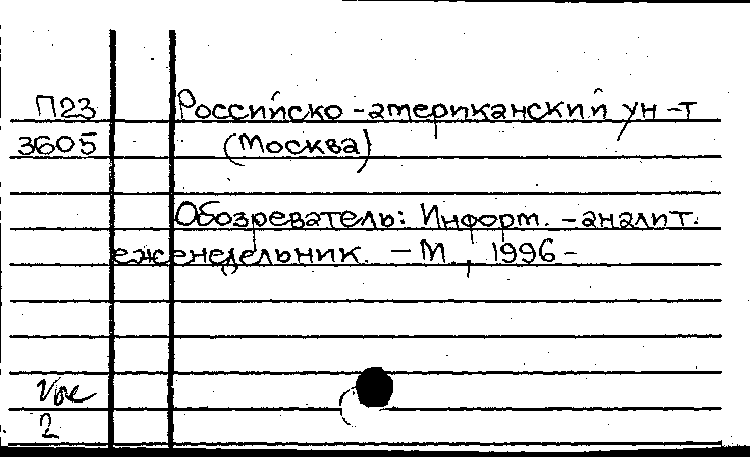 П23 Российско-американский ун-т
3605 (Москва)
Обозреватель: Информ.-аналит.
еженедельник. - М., 1996-
2